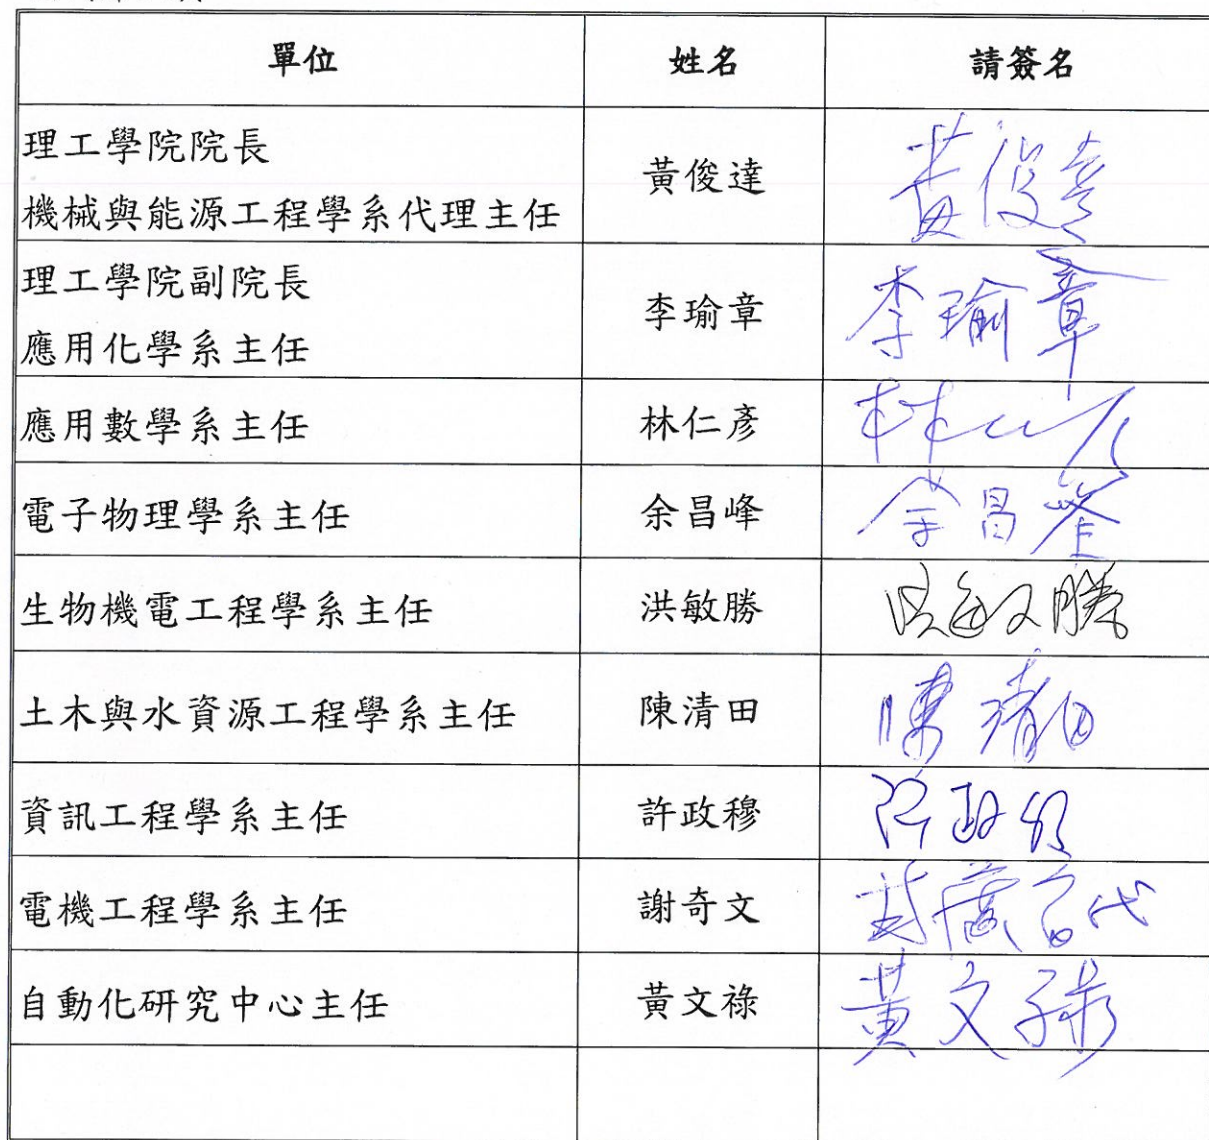 單位 姓名 請簽名
理工學院院長
機械與能源工程學系代理主任 黃俊達 黃俊達
理工學院副院長
應用化學系主任 李瑜章 李瑜章
應用數學系主任 林仁彥 林仁彥
電子物理學系主任 余昌峰 余昌峯
生物機電工程學系主任 洪敏勝 洪敏勝
土木與水資源工程學系主任 陳清田 陳清田
資訊工程學系主任 許政穆 許政穆
電機工程學系主任 謝奇文 代
自動化研究中心主任 黃文祿 黃文祿